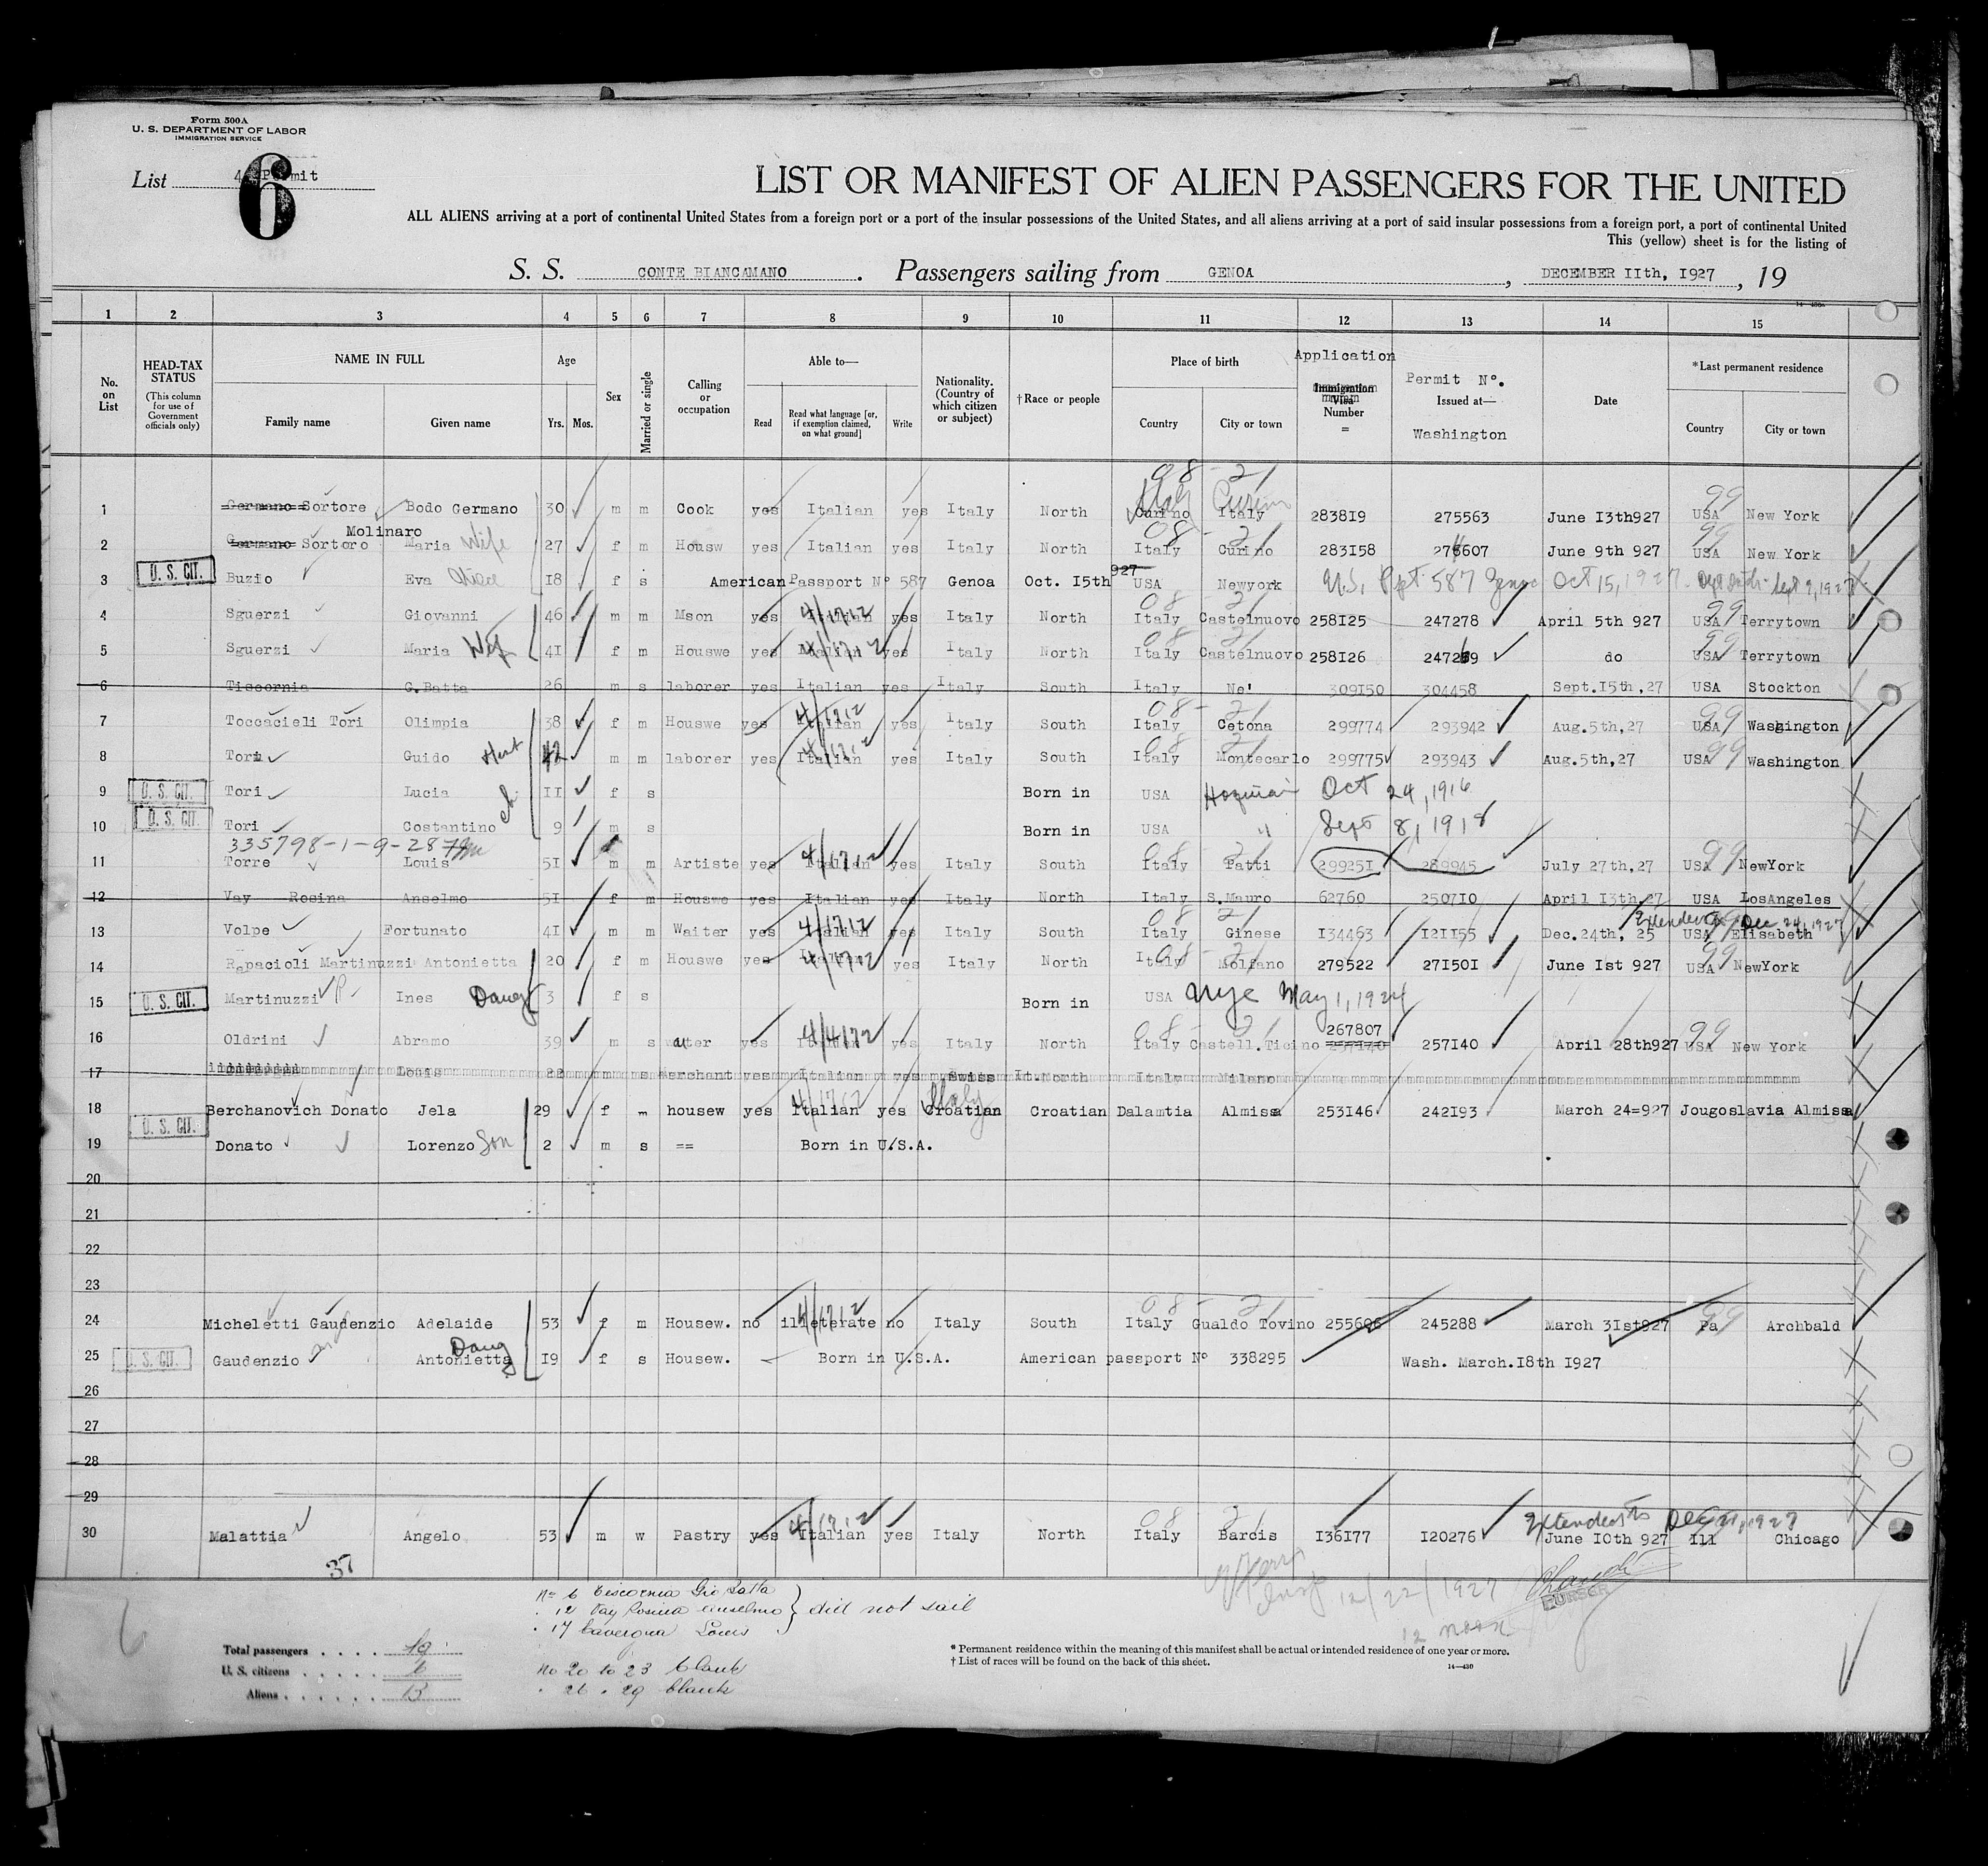 Form 500A
U. S. DEPARTMENT OF LABOR
IMMIGRATION SERVICE
List 4 Permit
6
LIST OR MANIFEST OF ALIEN PASSENGERS FOR THE UNITED
ALL ALIENS arriving at a port of continental United States from a foreign port or a port of the insular possessions of the United States, and all aliens arriving at a port of said insular possessions from a foreign port, a port of continental United
This (yellow) sheet is for the listing of
S. S. CONTE BIANCAMANO . Passengers sailing from GENOA , DECEMBER IIth, I927 , 19
1 2 3 4 5 6 7 8 9 10 11 12 13 14 15
No. on List
HEAD-TAX STATUS (This column for use of Government officials only)
NAME IN FULL Family name Given name
Age Yrs. Mos.
Sex
Married or single
Calling or occupation
Able to— Read Read what language [or, if exemption claimed, on what ground] Write
Nationality. (Country of which citizen or subject)
†Race or people
Place of birth Country City or town
Application Immigration Visa Number =
Permit Nº. Issued at— Washington
Date
*Last permanent residence Country City or town
08-21
1 Germano Sortore Bodo Germano 30 m m Cook yes Italian yes Italy North Curino Italy Italy Curino 2838I9 275563 June I3th927 99 USA New York
Molinaro
2 Germano Sortoro Maria Wife 27 f m Housw yes Italian yes Italy North 08-21 Italy Curino 283I58 274607 June 9th 927 99 USA New York
3 U. S. CIT. Buzio Eva Niece I8 f s American Passport Nº 587 Genoa Oct. I5th 927 USA Newyork U.S. Ppt 587 Genoa Oct 15, 1927 Sept 2, 1927
4 Sguerzi Giovanni 46 m m Mson yes Italian 4/1712 yes Italy North 08-21 Italy Castelnuovo 258I25 247278 April 5th 927 99 USA Terrytown
5 Sguerzi Maria Wife 4I f m Houswe yes Italian 4/1712 yes Italy North 08-21 Italy Castelnuovo 258I26 247269 do 99 USA Terrytown
6 Tiscornia G.Batta 26 m s laborer yes Italian yes Italy South Italy Ne' 309I50 304458 Sept.I5th,27 USA Stockton
7 Toccacieli Tori Olimpia 38 f m Houswe yes Italian 4/1712 yes Italy South 08-21 Italy Cetona 299774 293942 Aug.5th,27 99 USA Washington
8 Tori Guido Hust 42 m m laborer yes Italian 4/1712 yes Italy South 08-21 Italy Montecarlo 299775 293943 Aug.5th,27 99 USA Washington
9 U. S. CIT. Tori Lucia ch. II f s Born in USA Hoquiam Oct 24, 1916
10 U. S. CIT. Tori Costantino 9 m s Born in USA " Sept 8, 1918
335798-1-9-28
11 Torre Louis 5I m m Artiste yes Italian 4/1712 yes Italy South 08-21 Italy Patti 29925I 289945 July 27th,27 99 USA NewYork
12 Vay Rosina Anselmo 5I f m Houswe yes Italian yes Italy North Italy S.Mauro 62760 2507I0 April I3th,27 USA LosAngeles
Extended to Dec 24, 1927
13 Volpe Fortunato 4I m m Waiter yes Italian 4/1712 yes Italy South 08-21 Italy Ginese I34463 I2II55 Dec.24th, 25 99 USA Elisabeth
14 Rapacioli Martinuzzi Antonietta 20 f m Houswe yes Italian 4/1712 yes Italy North 08-21 Italy Molfano 279522 27I50I June Ist 927 99 USA NewYork
15 U. S. CIT. Martinuzzi Ines Daug 3 f s Born in USA Nyc May 1, 1924
16 Oldrini Abramo 39 m s waiter yes Italian yes Italy North 08-21 Italy Castell.Ticino 267807 257I40 257I40 April 28th927 99 USA New York
17 Louis 22 m s merchant yes Italian yes Swiss It.North Italy Milano
18 Berchanovich Donato Jela 29 f m housew yes Italian 4/1712 yes Croatian Italy Croatian Dalamtia Almissa 253I46 242I93 March 24=927 Jougoslavia Almissa
19 U. S. CIT. Donato Lorenzo Son 2 m s == Born in U.S.A.
20
21
22
23
24 Micheletti Gaudenzio Adelaide 53 f m Housew. no illeterate 4/1712 no Italy South 08-21 Italy Gualdo Tovino 255606 245288 March 3Ist927 99 Pa Archbald
25 U. S. CIT. Gaudenzio Antonietta Daug I9 f s Housew. Born in U.S.A. American passport Nº 338295 Wash. March.I8th I927
26
27
28
29
Extended to Dec 21, 1927
30 Malattia Angelo 53 m w Pastry yes Italian 4/1712 yes Italy North 08-21 Italy Barcis I36I77 I20276 June I0th 927 Ill Chicago
37
No 6 Tiscornia Gio Batta
. 12 Vay Rosina Anselmo } did not sail
. 17 Cavergna Louis
No 20 to 23 blank
. 26 . 29 blank
Total passengers . . . . 19
U. S. citizens . . . . . 6
Aliens . . . . . . 13
Insp 12/22/1927
12 noon
PURSER
* Permanent residence within the meaning of this manifest shall be actual or intended residence of one year or more.
† List of races will be found on the back of this sheet.
14—430